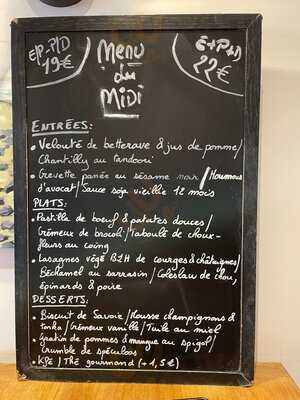 E/P. P/D
19€
Menu
du
Midi
E+P+D
22€
ENTRÉES:
• Velouté de betterave & jus de pomme/
Chantilly au tandoori
• Crevette panée au sésame noir/Houmous
d'avocat/Sauce soja vieillie 12 mois
PLATS:
• Pastilla de bœuf & patates douces/
Crémeux de brocoli/Taboulé de choux-
fleurs au coing
• Lasagnes végé de courges & châtaignes/
Béchamel au sarrasin/Coleslaw de chou,
épinards & poire
DESSERTS:
• Biscuit de Savoie/Mousse champignons &
tonka/Crémeux vanille/Tuile au miel
• Gratin de pommes & mangue au spigol/
Crumble de spéculoos
• KFE/THE gourmand (+1,5€)